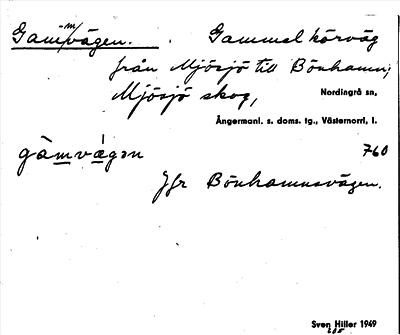 Gam(-m)vägen. Gammal körväg
från Mjösjö till Bönhamn;
Mjösjö skog, Nordingrå sn,
Ångermanl. s. doms. tg., Västernorrl, l.
gàmvägən 760
Jfr Bönhamnsvägen.
Sven Hiller 1949